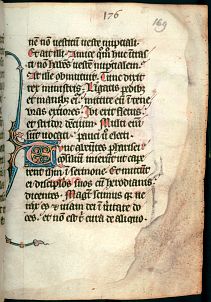 176
169
nem non vestitum veste nuptiali
Et ait illi. Amice quomodo huc intrasti
non habens vestem nuptialem.
At ille obmutuit. Tunc dixit
rex ministris. Ligatis pedibus
et manibus eius mittite eum in tene
bras exteriores. Ibi erit fletus
et stridor dentium. Multi enim
sunt vocati pauci electi.
Tunc abeuntes pharisei
consilium inierunt ut cape
rent eum in sermone. Et mittunt ei
discipulos suos cum herodianis
dicentes. Magister scimus quia ve
rax es et viam dei in veritate do
ces. et non est tibi cura de aliquo.